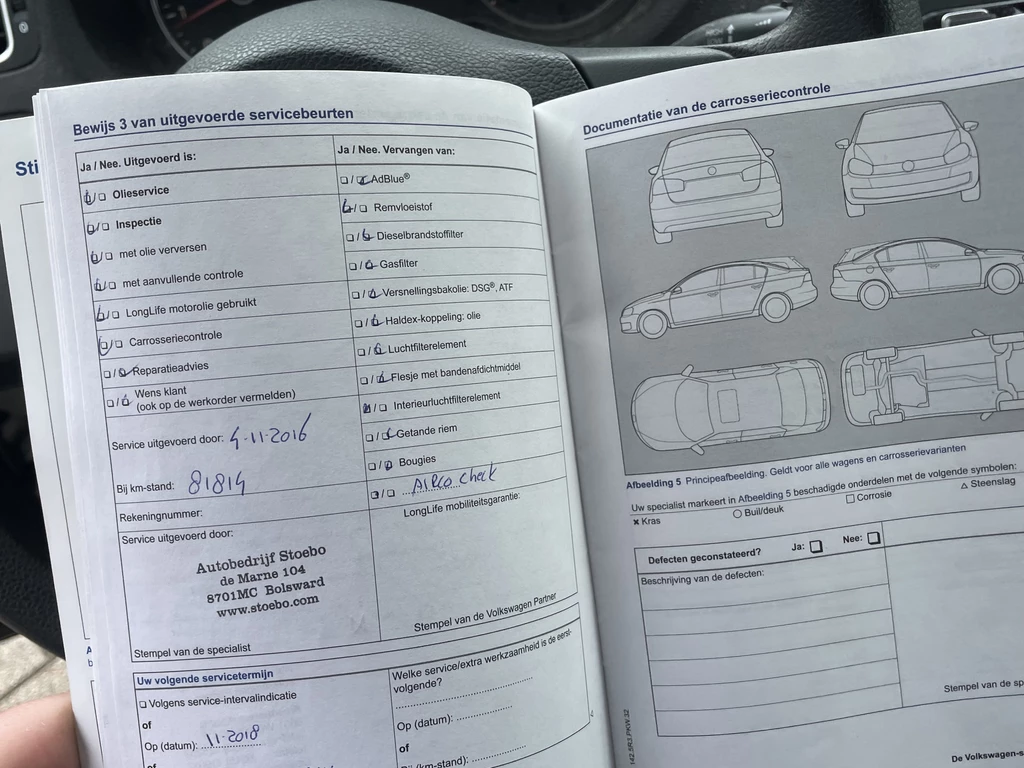 Sti
Bewijs 3 van uitgevoerde servicebeurten
Ja / Nee. Uitgevoerd is:
☑/☐ Olieservice
☑/☐ Inspectie
☑/☐ met olie verversen
☑/☐ met aanvullende controle
☑/☐ LongLife motorolie gebruikt
☑/☐ Carrosseriecontrole
☐/☑ Reparatieadvies
☐/☑ Wens klant
(ook op de werkorder vermelden)
Service uitgevoerd door: 4-11-2016
Bij km-stand: 81814
Rekeningnummer:
Service uitgevoerd door:
Autobedrijf Stoebo
de Marne 104
8701MC Bolsward
www.stoebo.com
Stempel van de specialist
Ja / Nee. Vervangen van:
☐/☑ AdBlue®
☑/☐ Remvloeistof
☐/☑ Dieselbrandstoffilter
☐/☑ Gasfilter
☐/☑ Versnellingsbakolie: DSG®, ATF
☐/☑ Haldex-koppeling: olie
☐/☑ Luchtfilterelement
☐/☑ Flesje met bandenafdichtmiddel
☑/☐ Interieurluchtfilterelement
☐/☑ Getande riem
☐/☑ Bougies
☑/☐ Airco check
LongLife mobiliteitsgarantie:
Stempel van de Volkswagen Partner
Uw volgende servicetermijn
☐ Volgens service-intervalindicatie
of
Op (datum): 11-2018
of
Welke service/extra werkzaamheid is de eerst-
volgende?
Op (datum):
of
Bij (km-stand):
Documentatie van de carrosseriecontrole
Afbeelding 5 Principeafbeelding. Geldt voor alle wagens en carrosserievarianten
Uw specialist markeert in Afbeelding 5 beschadigde onderdelen met de volgende symbolen:
✖ Kras ○ Buil/deuk ☐ Corrosie △ Steenslag
Defecten geconstateerd? Ja: ☐ Nee: ☐
Beschrijving van de defecten:
Stempel van de sp
142.5R3.PKW.32
De Volkswagen-s